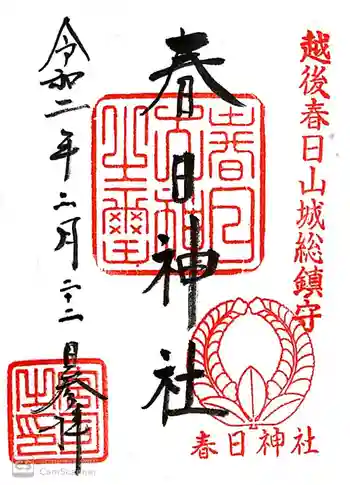 越後春日山城総鎮守
春日神社
春日神社
令和二年二月二十二日参拝
宮司之印
CS CamScanner